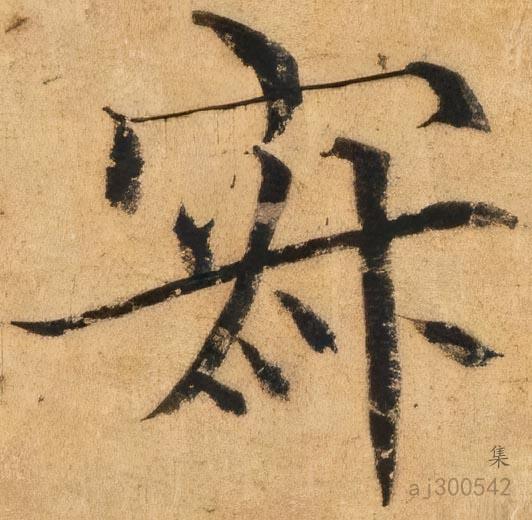 寂
集
aj300542